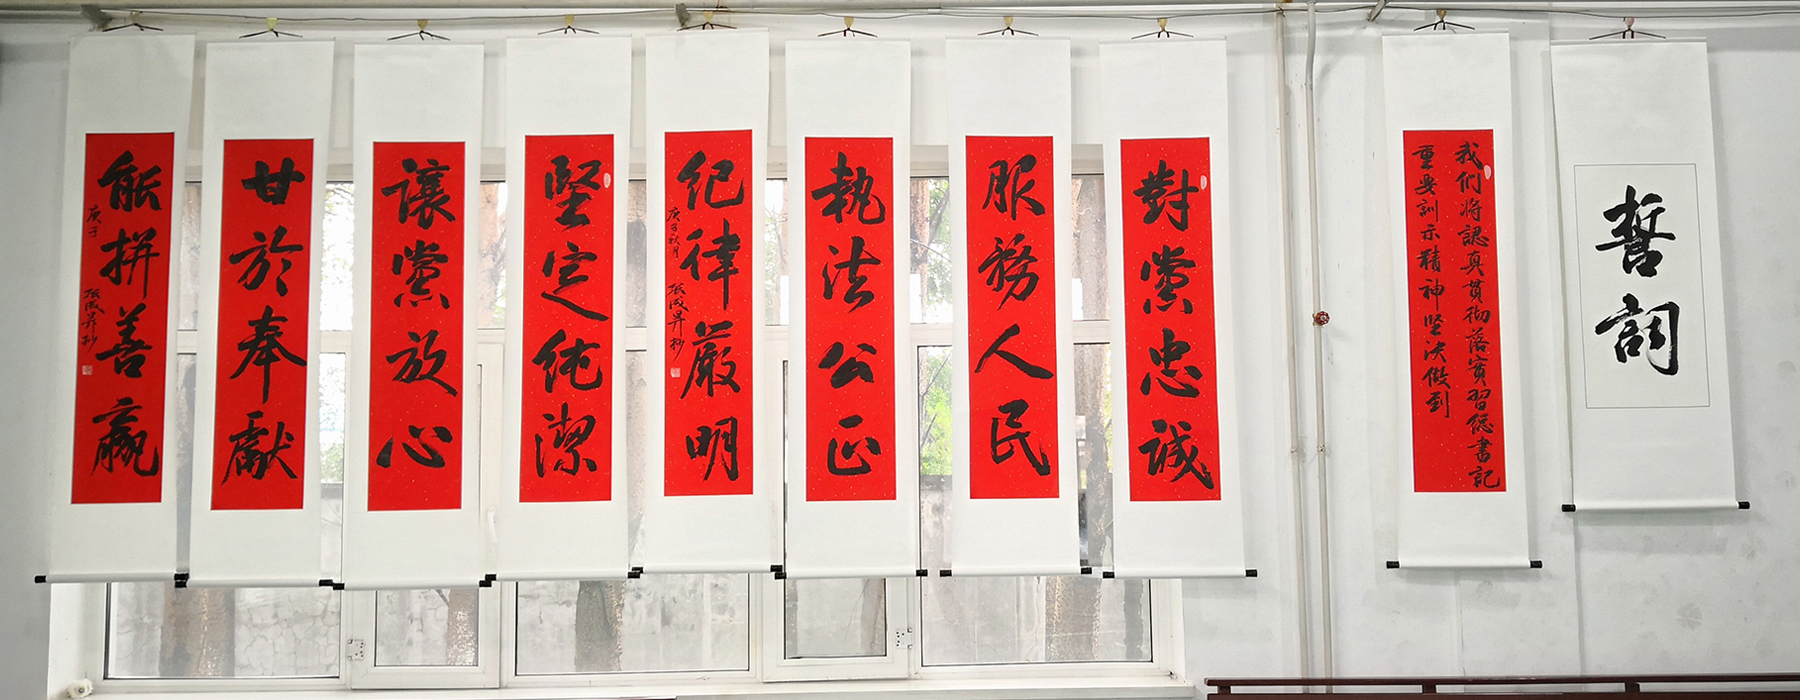 誓詞
我们将認真貫彻落實習総書記
重要訓示精神坚决做到
對黨忠誠
服務人民
執法公正
紀律嚴明
庚子秋月
張成昇抄
堅定純潔
讓黨放心
甘於奉獻
能拼善贏
庚子
張成昇抄